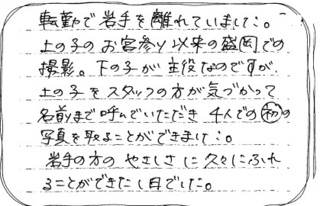 転勤で岩手を離れていました。
上の子のお宮参り以来の盛岡での
撮影。下の子が主役なのですが、
上の子をスタッフの方が気づかって
名前まで呼んでいただき 4人での初の
写真を取ることができました。
岩手の方の やさしさ に 久々に ふれ
ることができた1日でした。